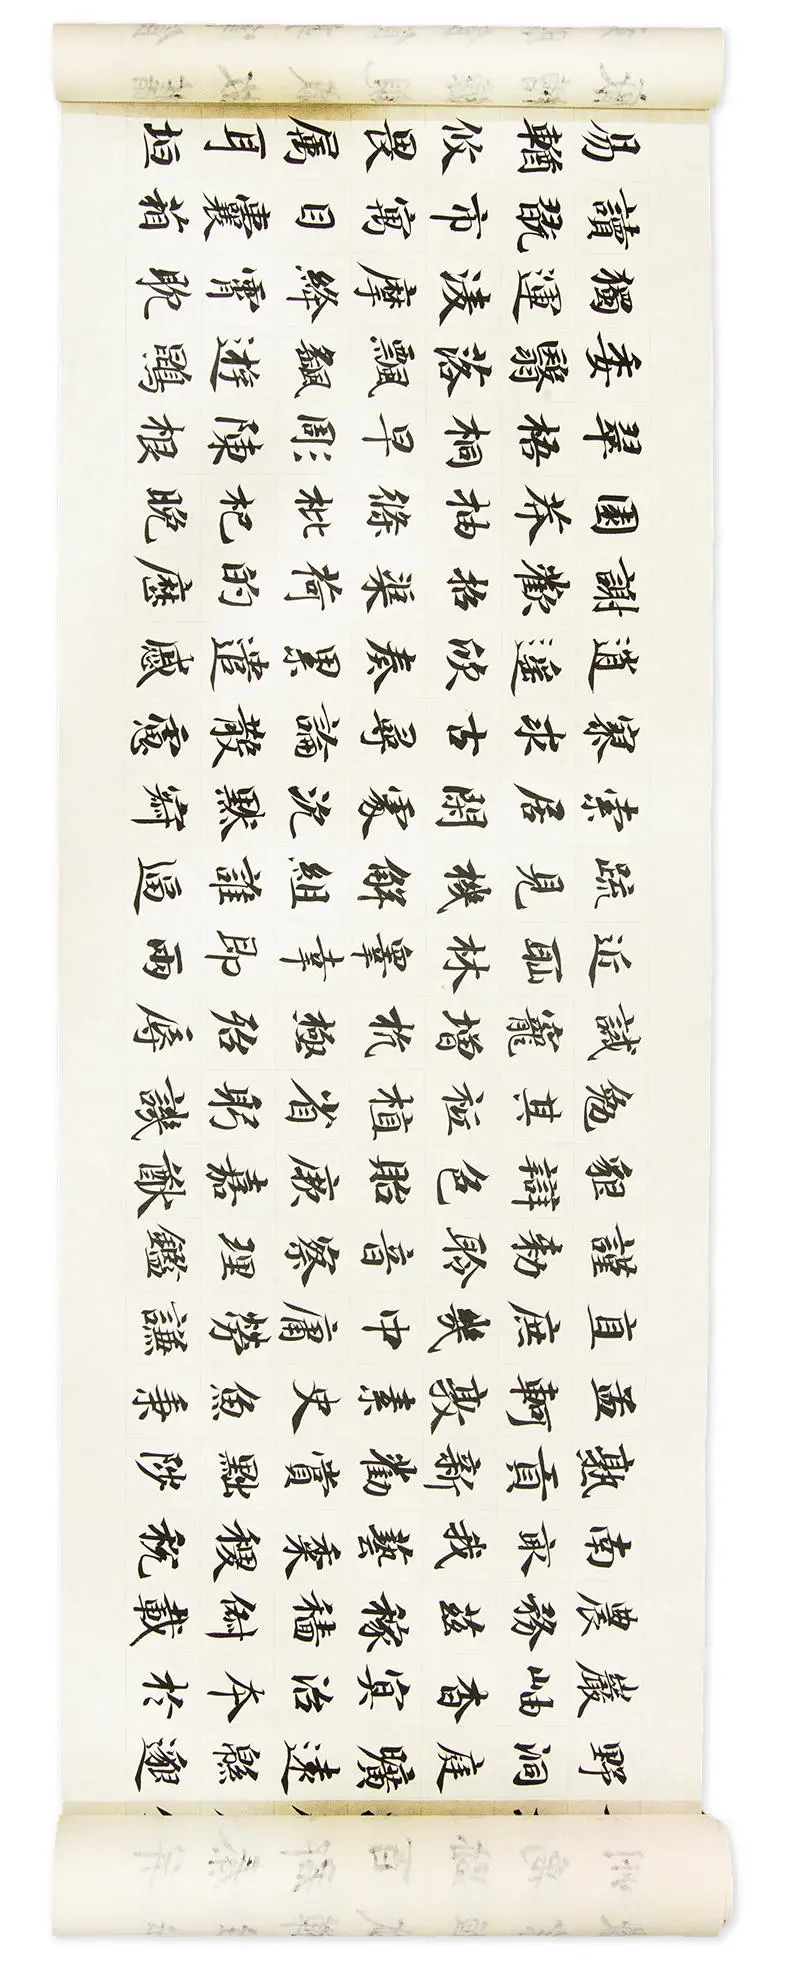 野洞庭曠遠緜邈
巖岫杳冥治本於
農務茲稼穡俶載
南畝我藝黍稷稅
熟貢新勸賞黜陟
孟軻敦素史魚秉
直庶幾中庸勞謙
謹勑聆音察理鑑
貌辯色貽厥嘉猷
勉其祗植省躬譏
誡寵增抗極殆辱
近耻林皐幸即兩
疏見機解組誰逼
索居閑處沈默寂
寥求古尋論散慮
逍遙欣奏累遣慼
謝歡招渠荷的歷
園莽抽條枇杷晚
翠梧桐早彫陳根
委翳落飄颻遊鵾
獨運凌摩絳霄耽
讀翫市寓目囊箱
易輶攸畏属耳垣